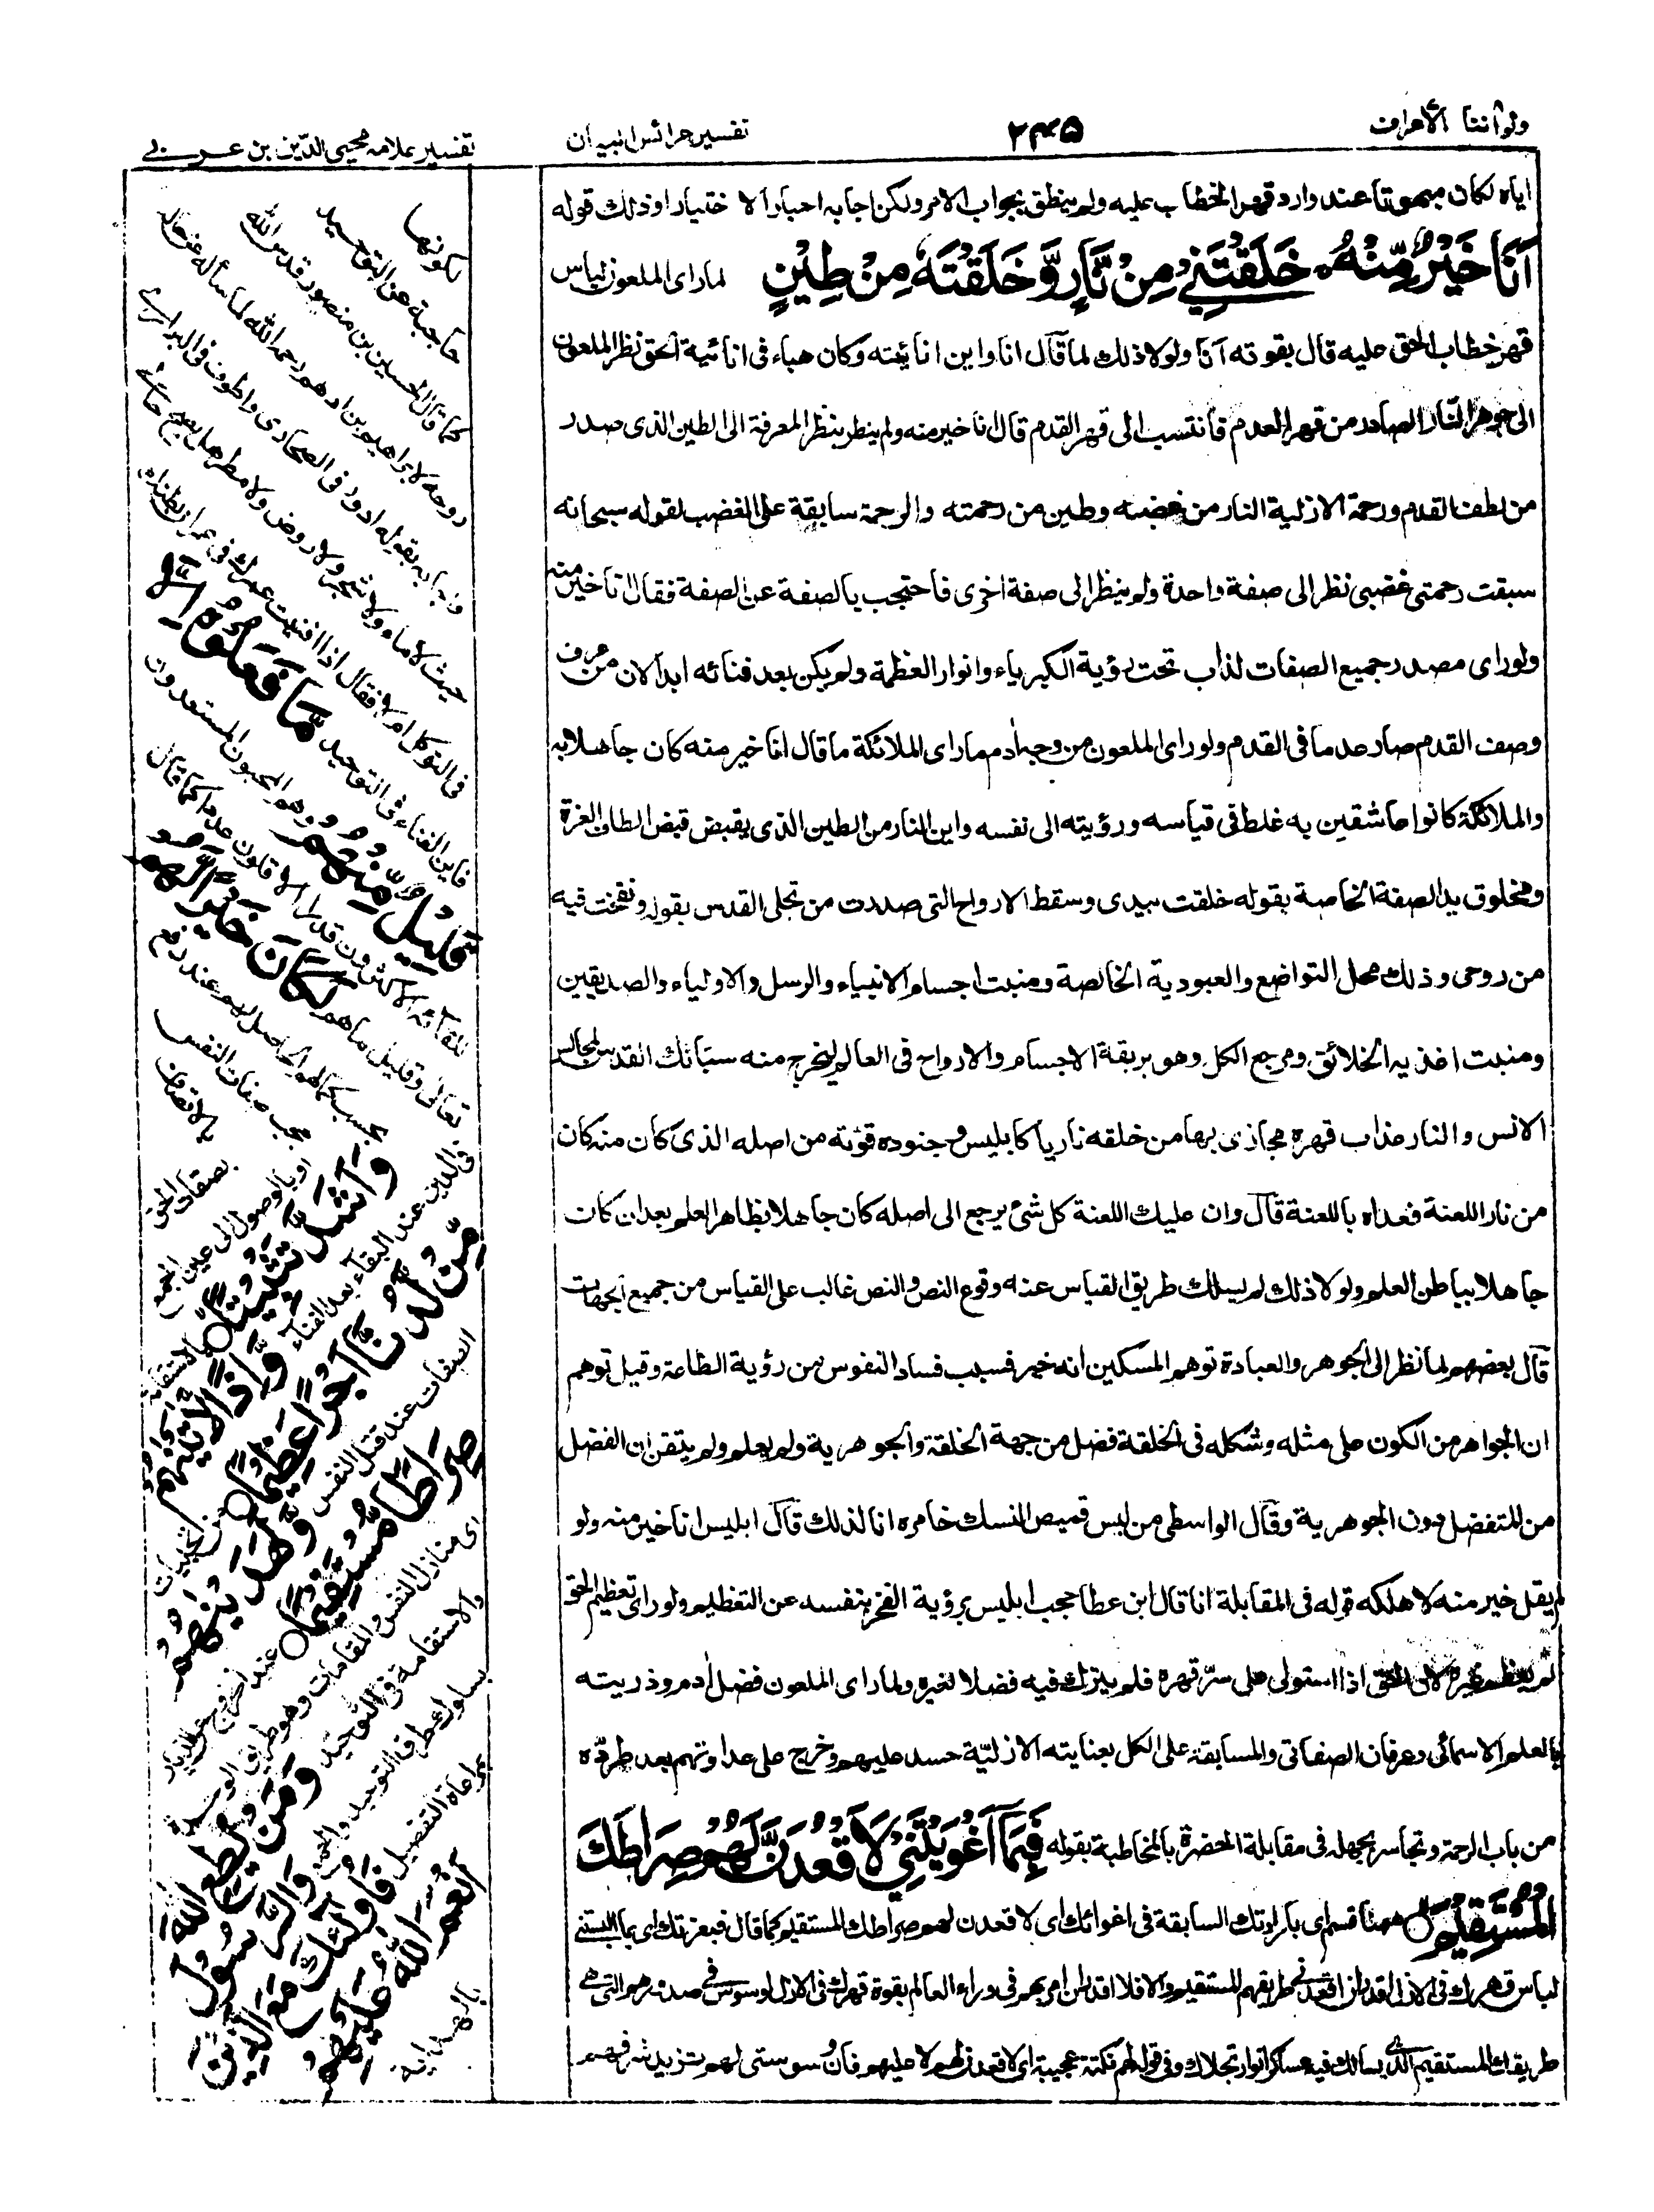 ولو أننا الأعراف
٢٤٥
تفسير عرائس البيان
تفسير علامه محيى الدين بن عربى
اياه لكان مبهوتا عند وارد قهر الخطاب عليه ولم ينطق بجواب الامر ولكن اجابه اجبارا لا اختيارا وذلك قوله
اَنَا خَيْرٌ مِّنْهُ خَلَقْتَنِيْ مِنْ نَّارٍ وَّخَلَقْتَهٗ مِنْ طِيْنٍ لما راى الملعون لباس
قهر خطاب الحق عليه قال بقوته انا ولولا ذلك لما قال انا واين انائيته وكان هباء فى انائية الحق نظر الملعون
الى جوهر النار الصادر من قهر العدم فانتسب الى قهر القدم قال انا خير منه ولم ينظر بنظر المعرفة الى الطين الذى صدر
من لطف القدم ورحمة الازلية النار من غضبه وطين من رحمته والرحمة سابقة على الغضب لقوله سبحانه
سبقت رحمتى غضبى نظر الى صفة واحدة ولم ينظر الى صفة اخرى فاحتجب بالصفة عن الصفة فقال انا خير منه
ولو راى مصدر جميع الصفات لذاب تحت رؤية الكبرياء وانوار العظمة ولم يكن بعد فنائه ابدا لان من عرف
وصف القدم صار عدما فى القدم ولو راى الملعون من وجه أدم ما راى الملائكة ما قال انا خير منه كان جاهلا به
والملائكة كانوا عاشقين به غلط فى قياسه ورؤيته الى نفسه واين النار من الطين الذى يقبض قبض الطاف العزة
ومخلوق يد الصفة الخاصة بقوله خلقت بيدى وسقط الارواح التى صدرت من تجلى القدس بقوله ونفخت فيه
من روحى وذلك محل التواضع والعبودية الخالصة ومنبت اجسام الانبياء والرسل والاولياء والصديقين
ومنبت اغذيه الخلائق ومرجع الكل وهو بريقة الاجسام والارواح فى العالم ليخرج منه سبائك القدس لمجالس
الانس والنار عذاب قهره مجازى بها من خلقه ناريا كابليس وجنوده قوته من اصله الذى كان منه كان
من نار اللعنة فعداه باللعنة قال وان عليك اللعنة كل شئ يرجع الى اصله كان جاهلا بظاهر العلم بعد ان كان
جاهلا بباطن العلم ولولا ذلك لم يسلك طريق القياس عند وقوع النص والنص غالب على القياس من جميع الجهات
قال بعضهم لما نظر الى الجوهر والعبادة توهم المسكين انه خير فسبب فساد النفوس من رؤية الطاعة وقيل توهم
ان الجواهر من الكون على مثله وشكله فى الخلقة فضل من جهة الخلقة والجوهرية ولم يعلم ولم يتقن ان الفضل
من المتفضل دون الجوهرية وقال الواسطى من لبس قميص النسك خامره انا لذلك قال ابليس انا خير منه ولو
لم يقل خير منه لاهلكه قوله فى المقابلة انا قال ابن عطا حجب ابليس برؤية الفخر بنفسه عن التعظيم ولو راى تعظيم الحق
لم يعظم غيره لان الحق اذا استولى على سرّ قهره فلم يترك فيه فضلا لغيره ولما راى الملعون فضل أدم وذريته
بالعلم الاسمائى وعرفان الصفاتى والمسابقة على الكل بعنايته الازليّة حسد عليهم وخرج على عداوتهم بعد طرقه
من باب الرحمة وتجاسر بجهله فى مقابلة الحضرة بالمخاطبة بقوله فَبِمَآ اَغْوَيْتَنِيْ لَاَقْعُدَنَّ لَهُمْ صِرَاطَكَ
الْمُسْتَقِيْمَ ههنا قسم اى بارادتك السابقة فى اغوائك اى لاقعدن لهم صراطك المستقيم كما قال فبعزتك اى بما البستنى
لباس قهرك فى الازل اقدر ان اقعد فى طريقهم المستقيم والا فلا اقدر ان امر بهم فى وراء العالم بقوة قهرك فى الازل لوسوس فى صدورهم التى هى
طريقك المستقيم الذى يسالك فيه عساكر انوار تجلاك وفى قوله لهم نكتة عجيبة اى لاقعدن لهم لا عليهم فان وسوستى لهم تزيد شرفهم
لكونها
حاجبة عن التوحيد
كما قال الحسين بن منصور قدس الله
روحه لابراهيم بن ادهم رحمه الله لما سأله عن حاله
واجابه بقوله ادور فى الصحارى واطوف فى البرارى
حيث لا ماء ولا شجر ولا روض ولا مطر هل يصح حالى
فى التوكل ام لا فقال اذا افنيت عمرك فى عمران باطنك
فاين الفناء فى التوحيد مَّا فَعَلُوْهُ اِلَّا
قَلِيْلٌ مِّنْهُمْ وهم المحبون المستعدون
للقائه الاكثرون قدرا الاقلون عددا كما قال
تعالى وقليل ما هم لَكَانَ خَيْرًا لَّهُمْ
بحسب كمالهم الحاصل لهم عند رفع
حجب صفات النفس
بالاتصاف
بصفات الحق
او بالوصول الى عين الجمع
وَاَشَدَّ تَثْبِيْتًا بالاستقامة
فى الدين عند البقاء بعد الفناء وَاِذًا لَّاٰتَيْنٰهُمْ
مِّنْ لَّدُنَّآ اَجْرًا عَظِيْمًا من تجليات
الصفات عند قتل النفس وَّلَهَدَيْنٰهُمْ
صِرَاطًا مُّسْتَقِيْمًا عند الخروج عن الديار
اى منازل النفس والمقامات وهو طريق الوحدة
والاستقامة فى التوحيد وَمَنْ يُّطِعِ اللّٰهَ
بسلوك طريق التوحيد والجمع وَالرَّسُوْلَ
بمراعاة التفصيل فَاُولٰٓئِكَ مَعَ الَّذِيْنَ
اَنْعَمَ اللّٰهُ عَلَيْهِمْ
بالهداية